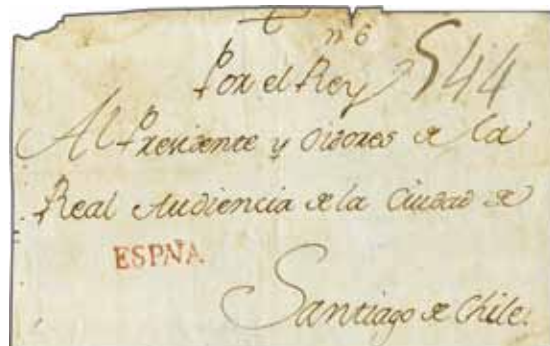 nº 6
Por el Rey 544
Al Presidente y Oidores de la
Real Audiencia de la Ciudad de
ESPAÑA
Santiago de Chile.